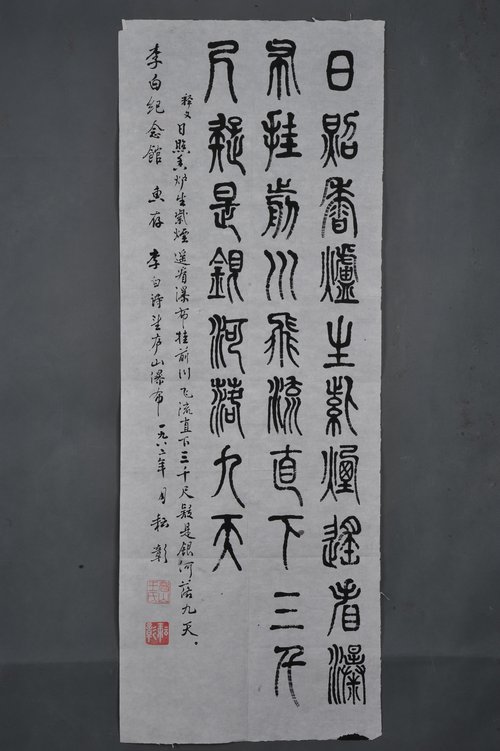 日照香爐生紫煙遥看瀑
布挂前川飛流直下三千
尺疑是銀河落九天
释文 日照香炉生紫煙遥看瀑布挂前川飞流直下三千尺疑是银河落九天。
李白纪念館 惠存 李白诗望庐山瀑布 一九八二年 耘彰